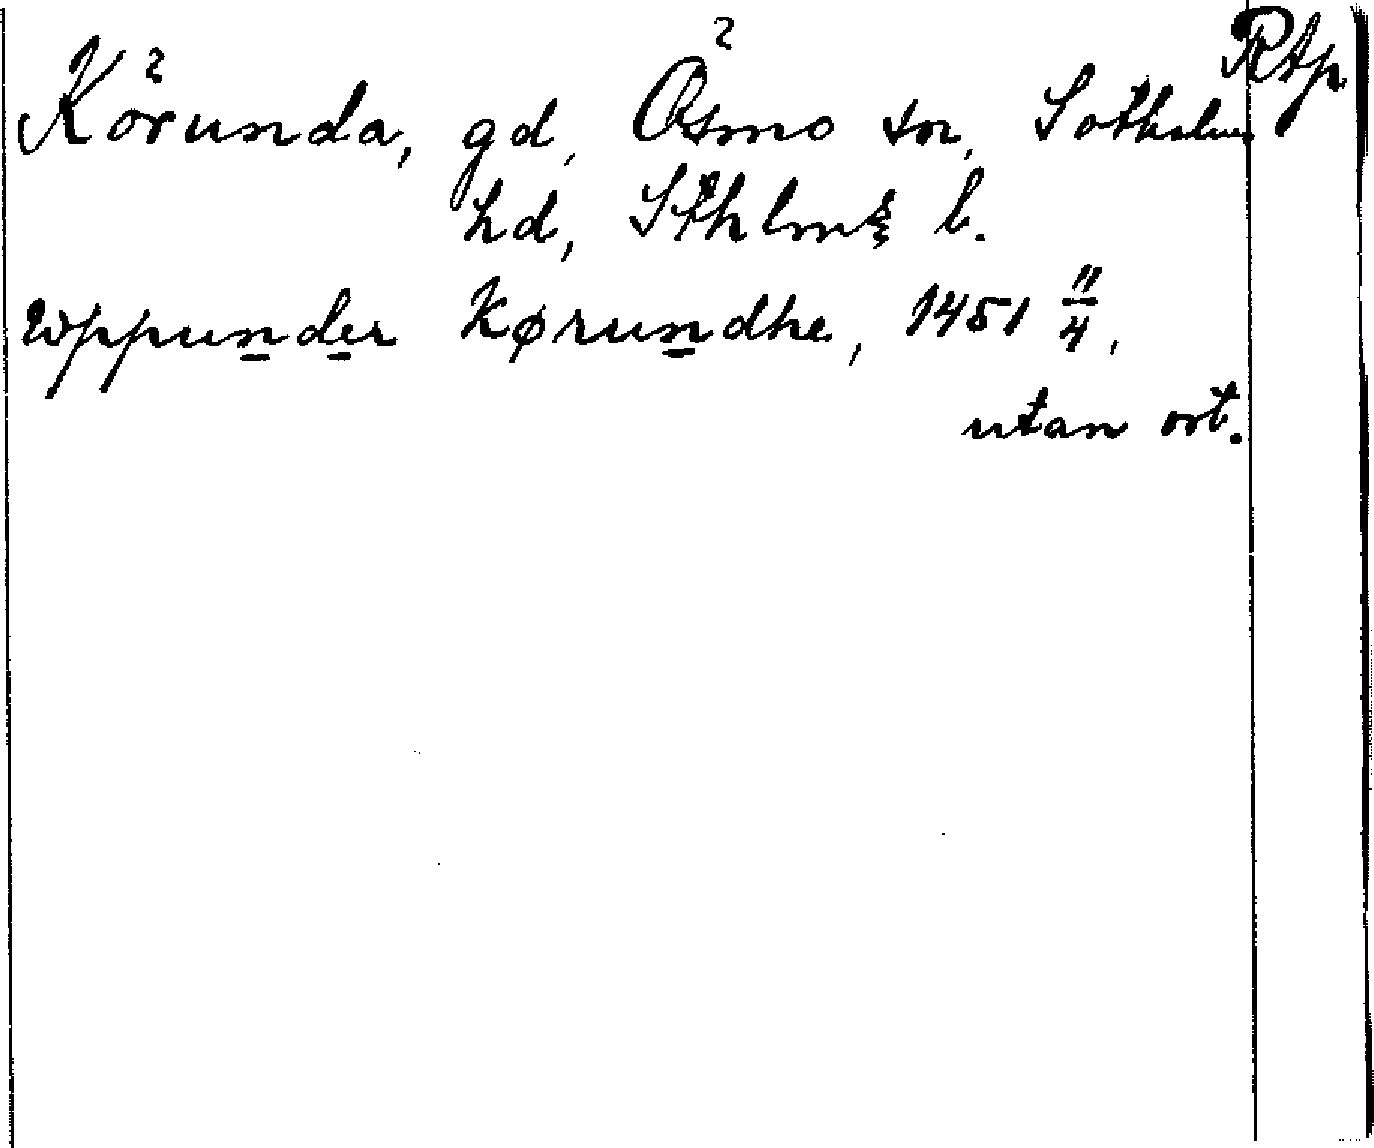 Rtp
Körunda, gd, Ösmo sn, Sotholms
hd, Sthlms l.
wppunder Kørundhe, 1451 11/4,
utan ort.